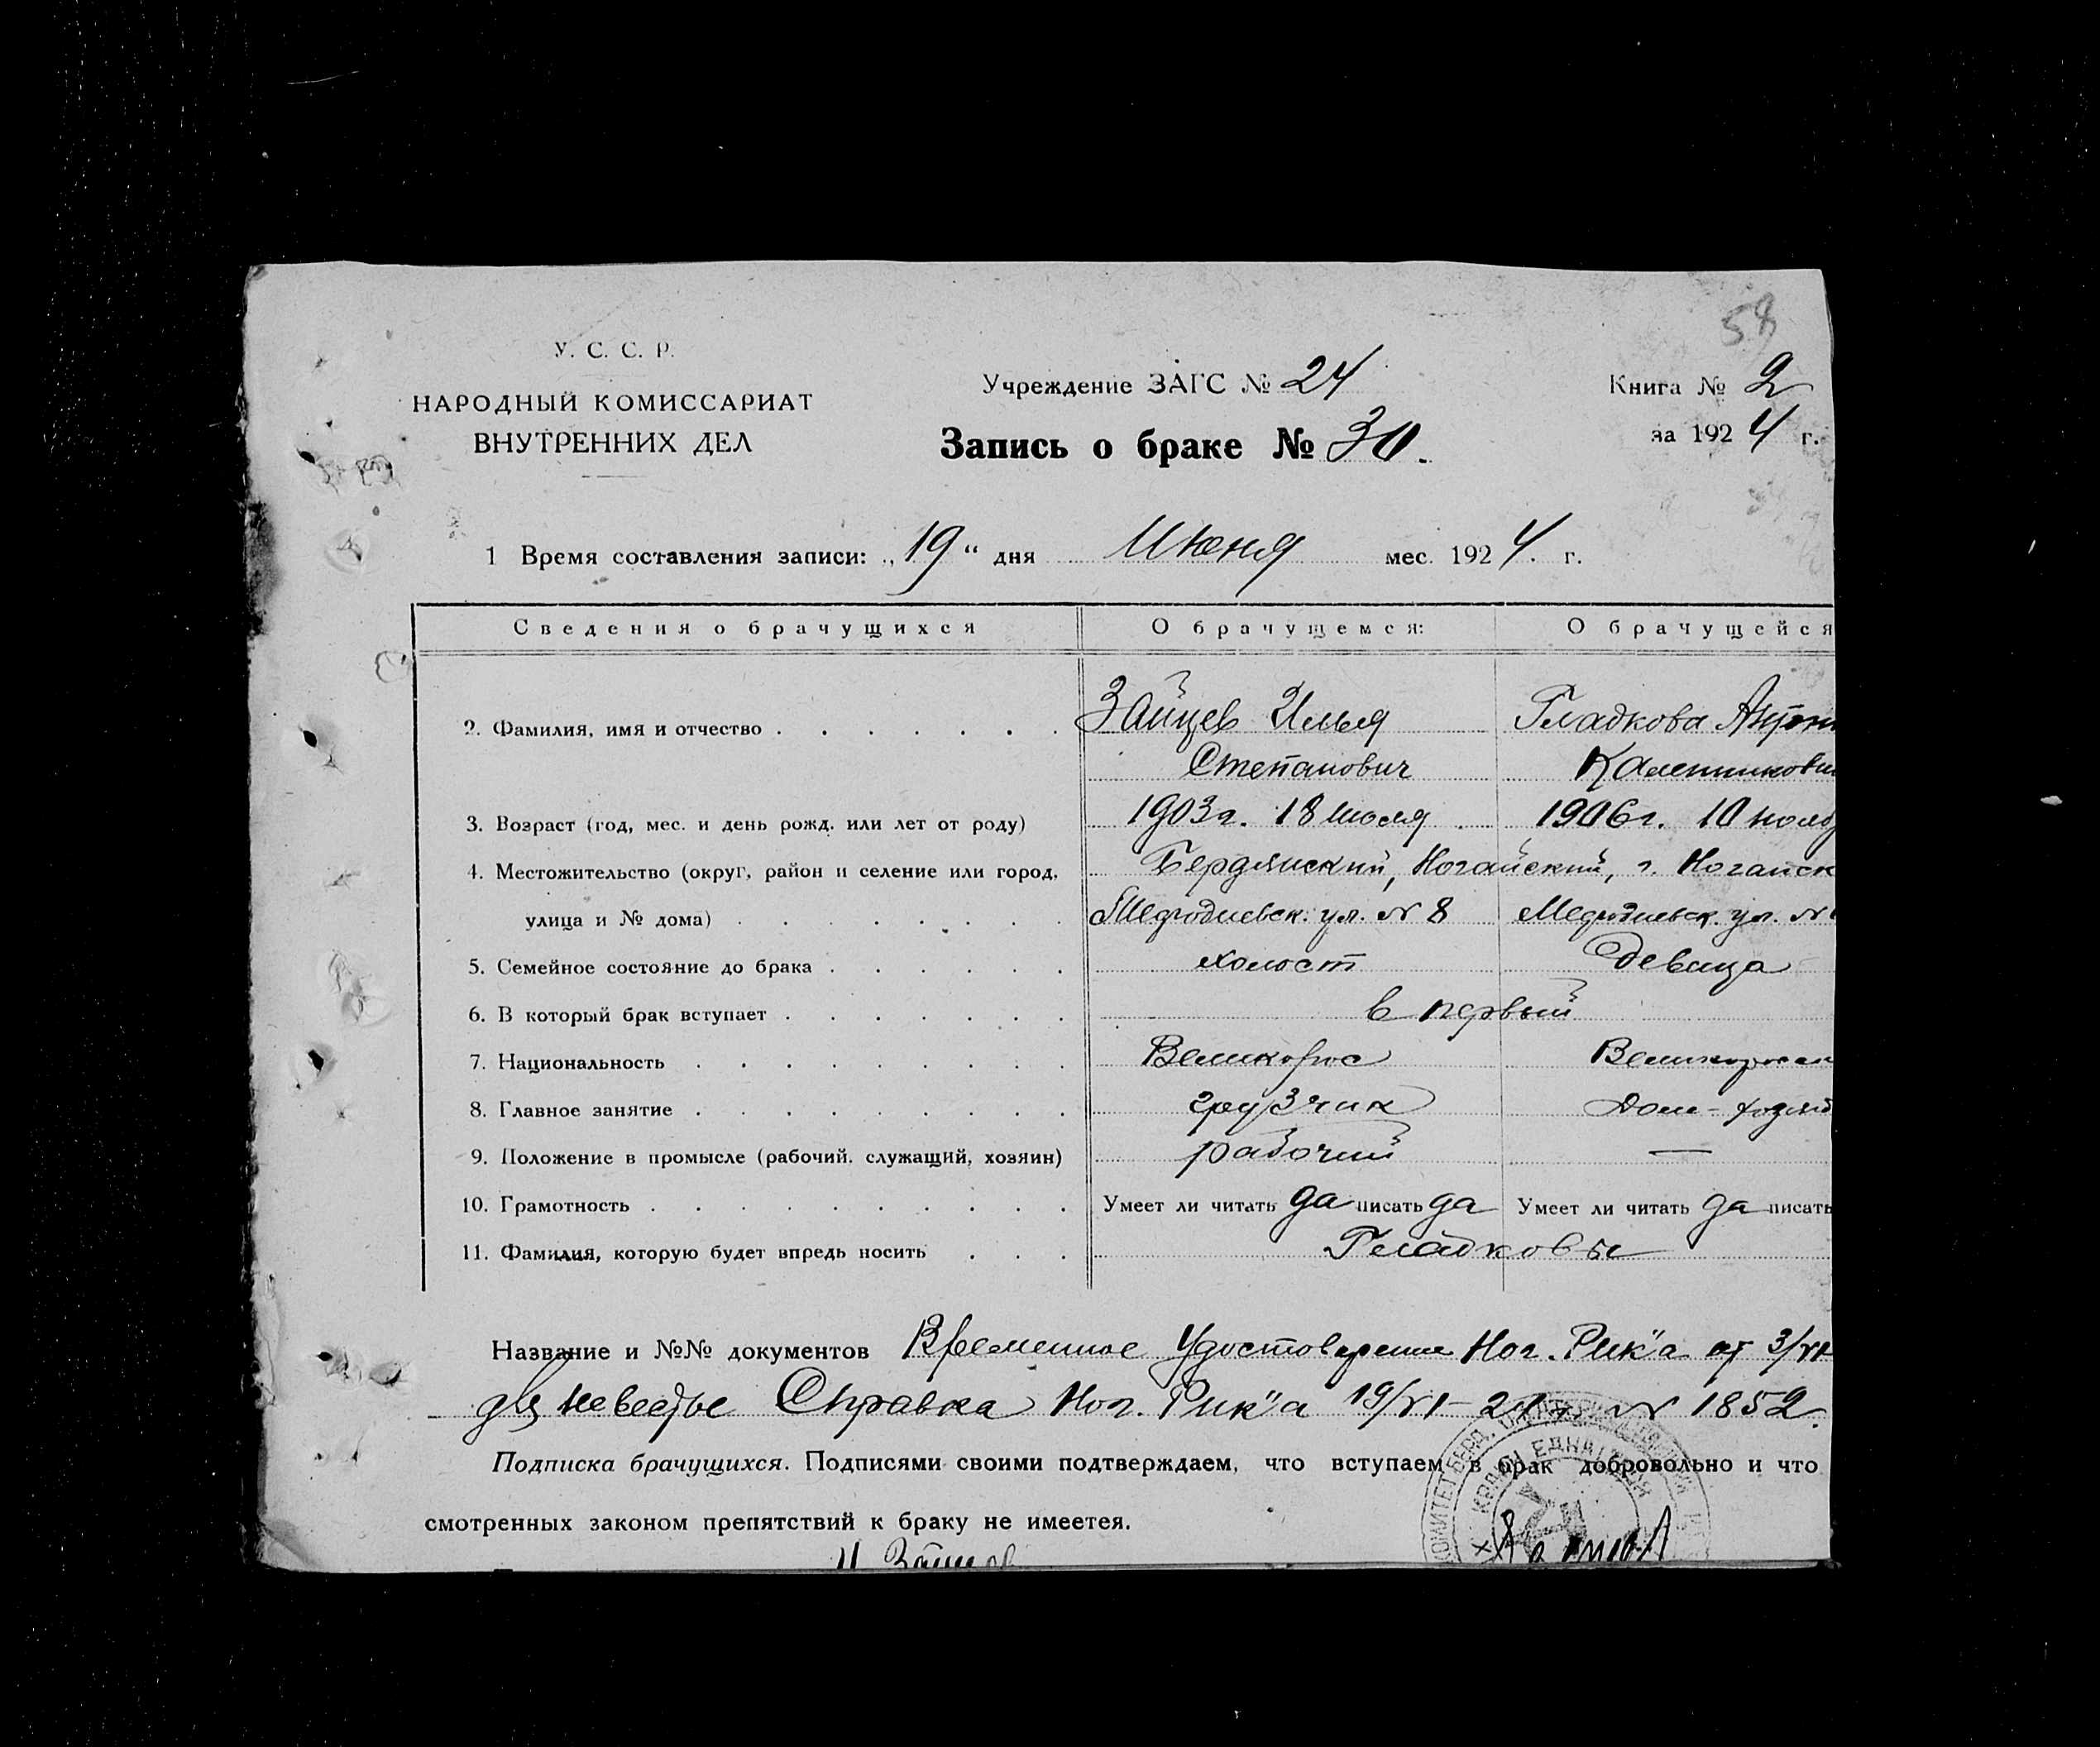 58
У. С. С. Р.
НАРОДНЫЙ КОМИССАРИАТ
ВНУТРЕННИХ ДЕЛ
Учреждение ЗАГС № 24
Книга № 2
за 1924 г.
Запись о браке № 30.
1 Время составления записи: „19“ дня Июня мес. 1924. г.
Сведения о брачущихся О брачущемся: О брачущейся
2. Фамилия, имя и отчество Зайцев Илья Гладкова Антон
Степанович Каленниковн
3. Возраст (год, мес. и день рожд. или лет от роду) 1903г. 18 Июля 1906г. 10 нояб
4. Местожительство (округ, район и селение или город, Бердянский, Ногайский, г. Ногайск
улица и № дома) ул. № 8 ул. №
5. Семейное состояние до брака холост девица
6. В который брак вступает в первый
7. Национальность Великорос Великоросс
8. Главное занятие грузчик Дом-хозяй
9. Положение в промысле (рабочий, служащий, хозяин) рабочий —
10. Грамотность Умеет ли читать да писать да Умеет ли читать да писать
11. Фамилия, которую будет впредь носить Гладковы
Название и №№ документов Временное Удостоверение Ног. Рик"а от 3/VI
для невесты Справка Ног. Рик"а 19/VI-24 г. № 1852.
Подписка брачущихся. Подписями своими подтверждаем, что вступаем в брак добровольно и что
смотренных законом препятствий к браку не имеется.
И Зайцев